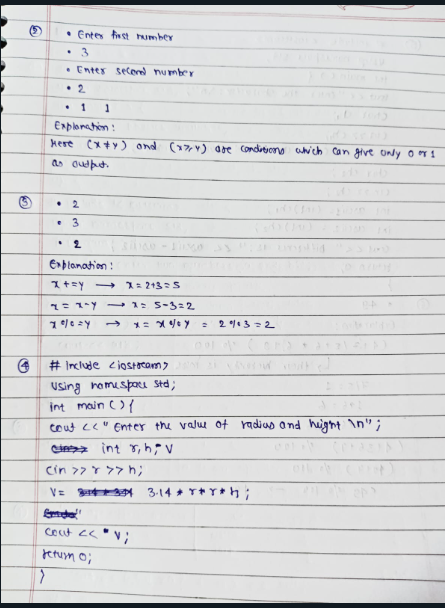 ② • Enter first number
• 3
• Enter second number
• 2
• 1 1
Explanation:
Here (x≠y) and (x>,y) are conditions which can give only 0 or 1
as output.
③ • 2
• 3
• 2
Explanation:
x+=y → x=2+3=5
x=x-y → x= 5-3=2
x%=y → x= x%y = 2%3=2
④ # Include <iostream>
Using namespace std;
int main () {
cout << " Enter the value of radius and height \n";
int r, h, V
Cin >> r >> h;
V= 3.14 * r * r * h ;
Cout << " V;
return 0;
}